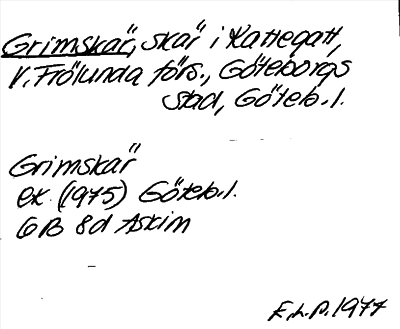 Grimskär, skär i Kattegatt,
V. Frölunda förs., Göteborgs
stad, Göteb. l.
Grimskär
ek. (1975) Göteb. l.
6B 8d Askim
F.L.P. 1977